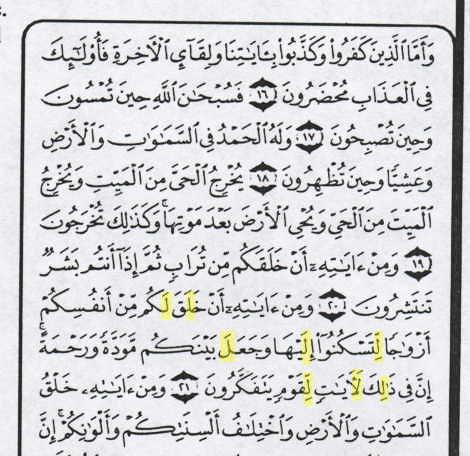 وَأَمَّا ٱلَّذِينَ كَفَرُوا۟ وَكَذَّبُوا۟ بِـَٔايَـٰتِنَا وَلِقَآئِ ٱلْـَٔاخِرَةِ فَأُو۟لَـٰٓئِكَ
فِى ٱلْعَذَابِ مُحْضَرُونَ ١٦ فَسُبْحَـٰنَ ٱللَّهِ حِينَ تُمْسُونَ
وَحِينَ تُصْبِحُونَ ١٧ وَلَهُ ٱلْحَمْدُ فِى ٱلسَّمَـٰوَٰتِ وَٱلْأَرْضِ
وَعَشِيًّا وَحِينَ تُظْهِرُونَ ١٨ يُخْرِجُ ٱلْحَىَّ مِنَ ٱلْمَيِّتِ وَيُخْرِجُ
ٱلْمَيِّتَ مِنَ ٱلْحَىِّ وَيُحْىِ ٱلْأَرْضَ بَعْدَ مَوْتِهَا ۚ وَكَذَٰلِكَ تُخْرَجُونَ
١٩ وَمِنْ ءَايَـٰتِهِۦٓ أَنْ خَلَقَكُم مِّن تُرَابٍ ثُمَّ إِذَآ أَنتُم بَشَرٌ
تَنتَشِرُونَ ٢٠ وَمِنْ ءَايَـٰتِهِۦٓ أَنْ خَلَقَ لَكُم مِّنْ أَنفُسِكُمْ
أَزْوَٰجًا لِّتَسْكُنُوٓا۟ إِلَيْهَا وَجَعَلَ بَيْنَكُم مَّوَدَّةً وَرَحْمَةً ۚ
إِنَّ فِى ذَٰلِكَ لَـَٔايَـٰتٍ لِّقَوْمٍ يَتَفَكَّرُونَ ٢١ وَمِنْ ءَايَـٰتِهِۦ خَلْقُ
ٱلسَّمَـٰوَٰتِ وَٱلْأَرْضِ وَٱخْتِلَـٰفُ أَلْسِنَتِكُمْ وَأَلْوَٰنِكُمْ ۚ إِنَّ